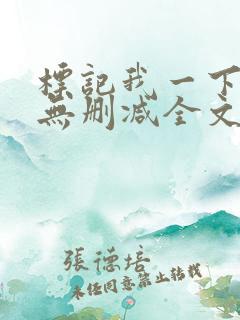 標記我一下
無刪减全文
張德培
未經同意禁止轉載